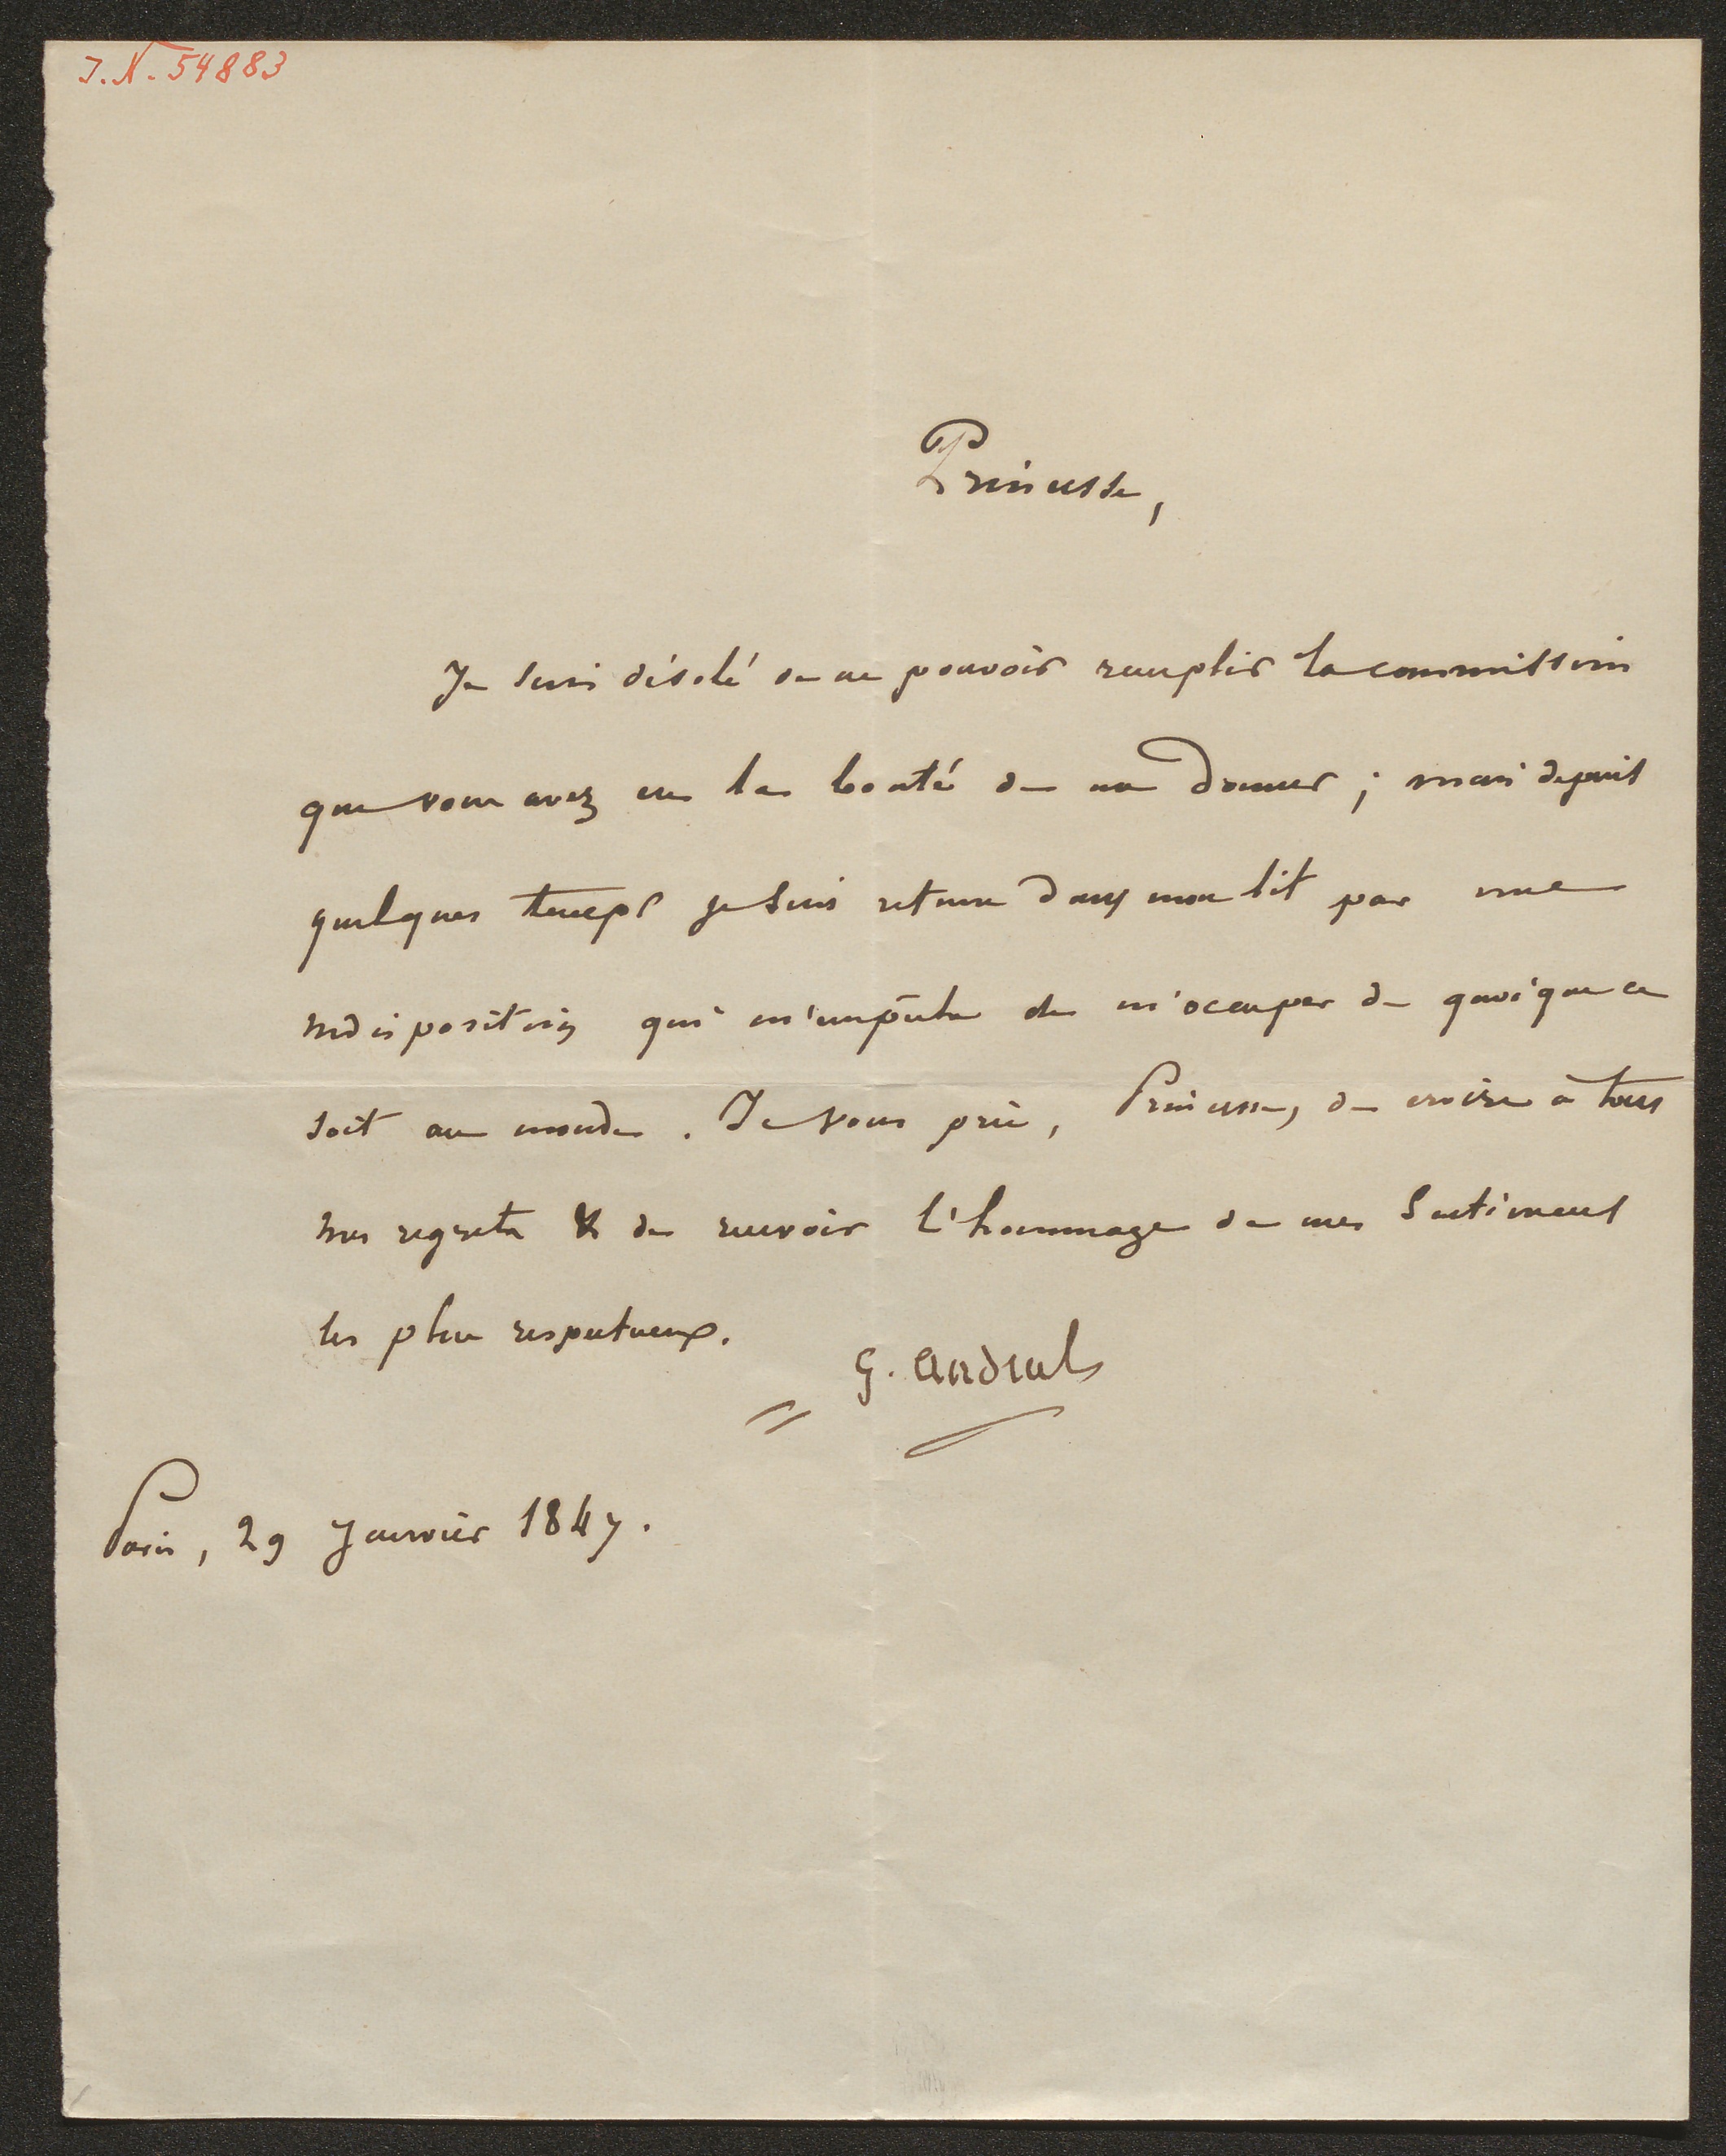 J. N. 54883
Princesse,
Je suis désolé de ne pouvoir remplir la commission
que vous avez eu la bonté de me donner ; mais depuis
quelques temps je suis retenu dans mon lit par une
indisposition qui m'empêche de m'occuper de quoi que ce
soit au monde. Je vous prie, Princesse, de croire à tous
mes regrets & de recevoir l'hommage de mes sentiments
les plus respectueux.
G. Andral
Paris, 29 Janvier 1847.